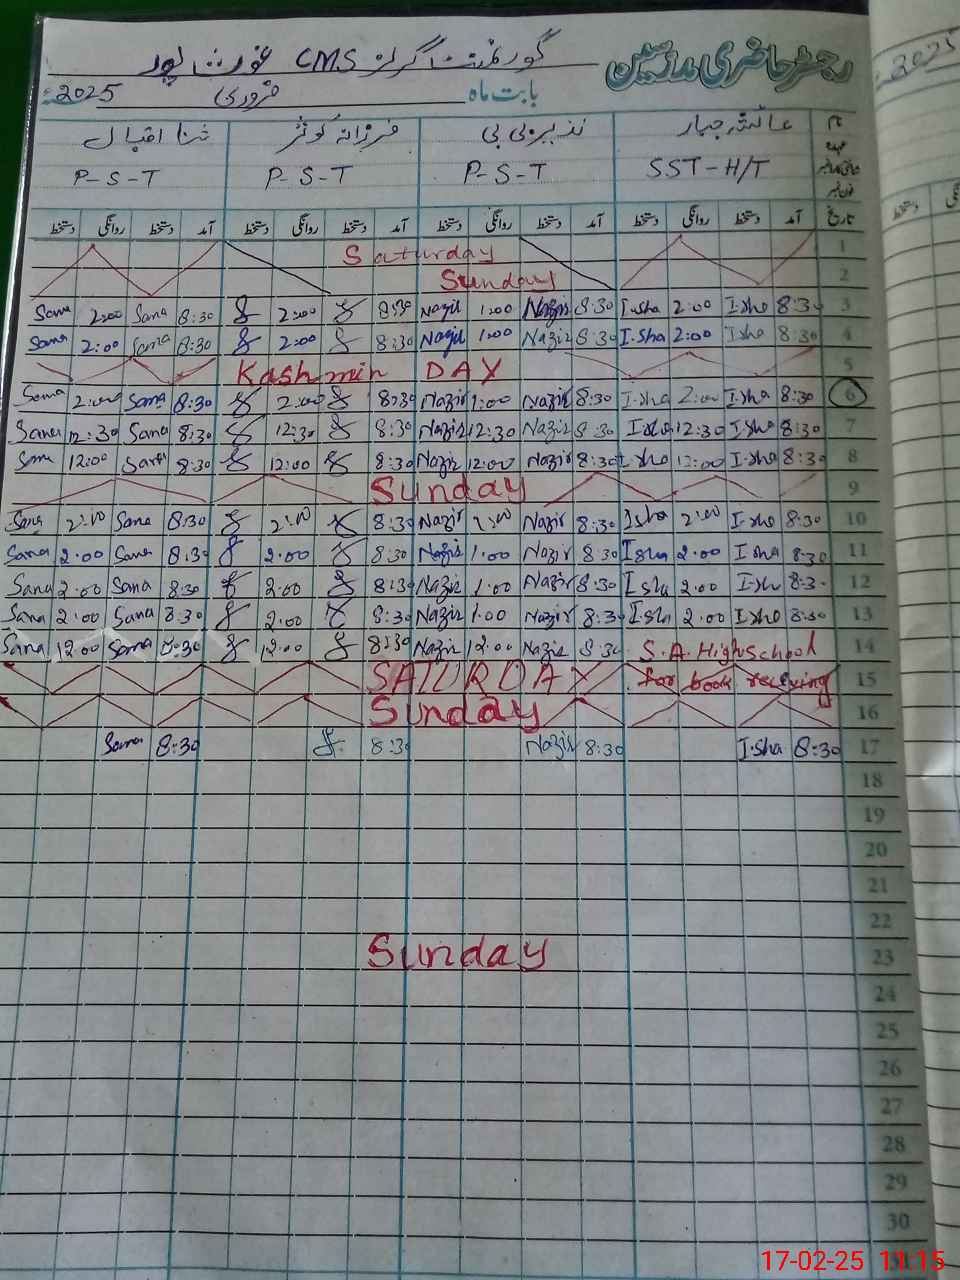 رجسٹر حاضری مدرسین گورنمنٹ گرلز CMS غوث پور
بابت ماہ فروری 2025
نام عائشہ جبار نذیر بی بی فرزانہ کوثر ثنا اقبال
SST-H/T P-S-T P-S-T P-S-T
تاریخ آمد دستخط روانگی دستخط آمد دستخط روانگی دستخط آمد دستخط روانگی دستخط آمد دستخط روانگی دستخط
Saturday 1
Sunday 2
Sana 2:00 Sana 8:30 2:00 8:30 Nazir 1:00 Nazir 8:30 I.sha 2:00 I.sha 8:30 3
Sana 2:00 Sana 8:30 2:00 8:30 Nazir 1:00 Nazir 8:30 I.sha 2:00 I.sha 8:30 4
Kashmir DAY 5
Sana 2:00 Sana 8:30 2:00 8:30 Nazir 1:00 Nazir 8:30 I.sha 2:00 I.sha 8:30 6
Sana 12:30 Sana 8:30 12:30 8:30 Nazir 12:30 Nazir 8:30 I.sha 12:30 I.sha 8:30 7
Sana 12:00 Sana 8:30 12:00 8:30 Nazir 12:00 Nazir 8:30 I.sha 12:00 I.sha 8:30 8
Sunday 9
Sana 2:00 Sana 8:30 2:00 8:30 Nazir 1:00 Nazir 8:30 Isha 2:00 I.sha 8:30 10
Sana 2:00 Sana 8:30 2:00 8:30 Nazir 1:00 Nazir 8:30 Isha 2:00 I.sha 8:30 11
Sana 2:00 Sana 8:30 2:00 8:30 Nazir 1:00 Nazir 8:30 I.sha 2:00 I.sha 8:30 12
Sana 2:00 Sana 8:30 2:00 8:30 Nazir 1:00 Nazir 8:30 I.sha 2:00 I.sha 8:30 13
Sana 12:00 Sana 8:30 12:00 8:30 Nazir 12:00 Nazir 8:30 S.A. High School 14
SATURDAY for book receiving 15
Sunday 16
Sana 8:30 8:30 Nazir 8:30 I.sha 8:30 17
18
19
20
21
22
Sunday 23
24
25
26
27
28
29
30
17-02-25 11:15
2025